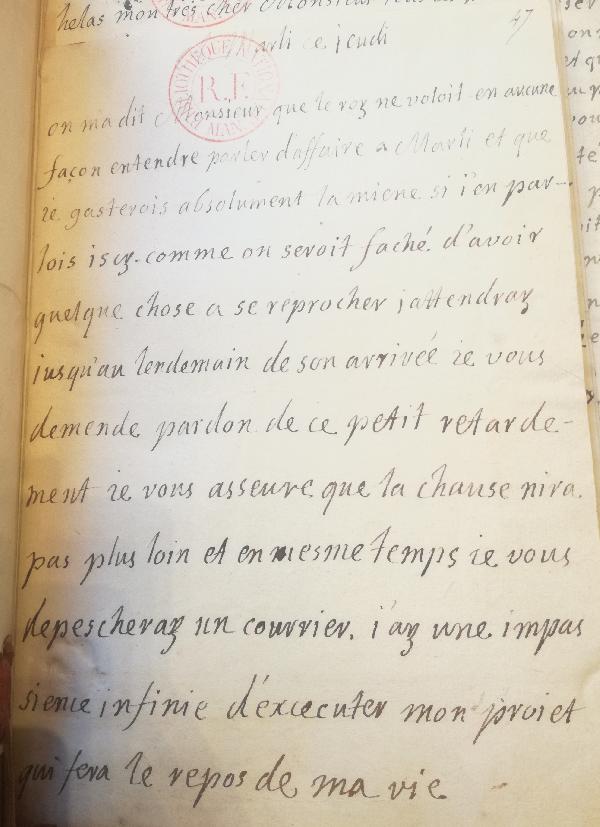 helas mon tres cher Monsieur
47
Marli ce jeudi
BIBLIOTHEQUE NATIONALE
R.F.
MAN
on ma dit Monsieur que le roy ne voloit en aucune
façon entendre parler daffaire a Marli et que
ie gasterois absolument la miene si i'en par-
lois iscy. comme on seroit faché d'avoir
quelque chose a se reprocher jattendray
jusqu'au lendemain de son arrivée ie vous
demende pardon de ce petit retarde-
ment ie vous asseure que la chause nira
pas plus loin et en mesme temps ie vous
depescheray un courrier. i'ay une impas
sience infinie d'éxcecuter mon proiet
qui fera le repos de ma vie